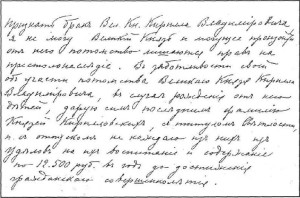 Признать брак Вел. Кн. Кирилла Владимировича
я не могу. Великий Князь и могущее произойти
от него потомство лишаются прав на
престолонаследие. В заботливости своей
об участи потомства Великого Князя Кирилла
Владимировича, в случае рождения от него
детей, дарую сим последним фамилию
Князей Кирилловских, с титулом Светлости,
и с отпуском на каждого из них из
уделов на их воспитание и содержание
по 12.500 руб. в год до достижения
гражданского совершеннолетия.